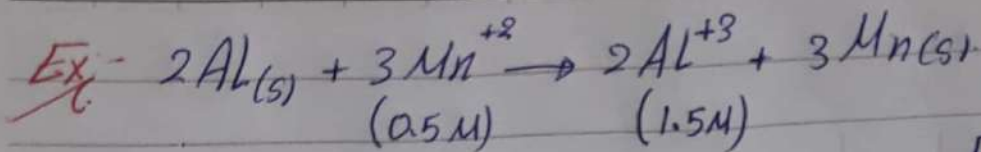 Ex:- 2AL(s) + 3Mn+2 → 2AL+3 + 3Mn(s)
(0.5M) (1.5M)